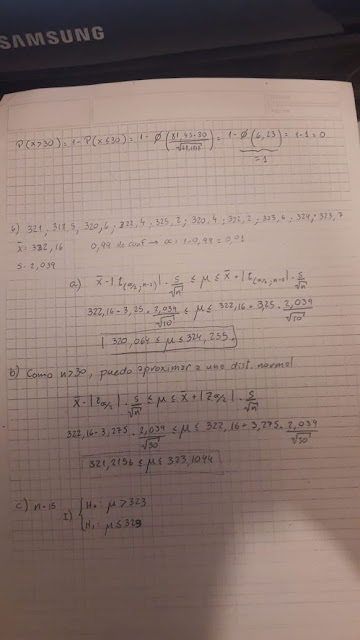 SAMSUNG
P(x>30) = 1 - P(x≤30) = 1 - Ø = 1 - Ø(6,23) = 1-1 = 0
=1
321, 318,5, 320,6, 322,4, 325,2, 320,4, 322,2, 323,6, 324, 323,7
x̄: 322,16 0,99 de conf → α = 1-0,99 = 0,01
S: 2,039
a) x̄ - |t(α/2; n-1)| · S/√n ≤ μ ≤ x̄ + |t(α/2; n-1)| · S/√n
322,16 - 3,25 · 2,039/√10 ≤ μ ≤ 322,16 + 3,25 · 2,039/√10
320,064 ≤ μ ≤ 324,255
b) Como n>30, puedo aproximar a una dist. normal
x̄ - |Zα/2| · S/√n ≤ μ ≤ x̄ + |Zα/2| · S/√n
322,16 - 3,275 · 2,039/√30 ≤ μ ≤ 322,16 + 3,275 · 2,039/√30
≤ μ ≤
c) n=15 I) { H₀: μ > 323
H₁: μ ≤